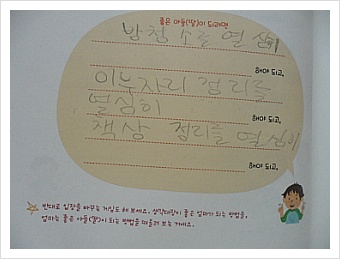 좋은 아들(딸)이 되려면
방청 수를 열심히
해야 되고,
이누자리 정리를
열심히
해야 되고,
책상 정리를 열심히
해야 되고,
반대로 입장을 바꾸는 게임도 해 보세요. 생각대장이 좋은 엄마가 되는 방법을,
엄마는 좋은 아들(딸)이 되는 방법을 떠올려 보는 거예요.